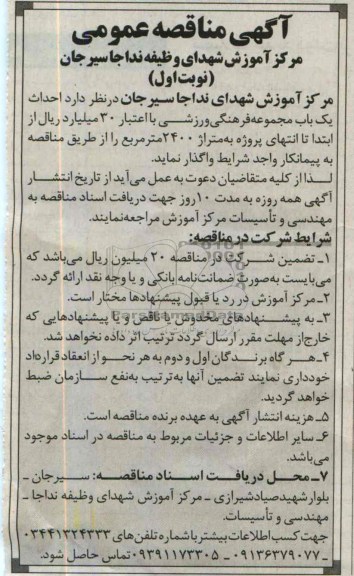 آگهی مناقصه عمومی
مرکز آموزش شهدای وظیفه نداجا سیرجان
(نوبت اول)
مرکز آموزش شهدای نداجا سیرجان درنظر دارد احداث
یک باب مجموعه فرهنگی ورزشی با اعتبار ۳۰ میلیارد ریال از
ابتدا تا انتهای پروژه به‌متراژ ۲۴۰۰ مترمربع را از طریق مناقصه
به پیمانکار واجد شرایط واگذار نماید.
لـذا از کلیه متقاضیان دعوت به عمل می‌آید از تاریخ انتشـار
آگهی همه روزه به مدت ۱۰روز جهت دریافت اسناد مناقصه به
مهندسی و تأسیسات مرکز آموزش مراجعه‌نمایند.
شرایط شرکت در مناقصه:
۱ـ تضمین شـرکت در مناقصه ۲۰ میلیون ریال می‌باشد که
می‌بایست به‌صورت ضمانت‌نامه بانکی و یا وجه نقد ارائه گردد.
۲ـ مرکز آموزش در رد یا قبول پیشنهادها مختار است.
۳ـ به پیشـنهادهای مخدوش یا ناقص و یا پیشنهادهایی که
خارج‌از مهلت مقرر ارسال گردد ترتیب اثر داده نخواهد شد.
۴ـ هـر گاه برنـدگان اول و دوم به هر نحـو از انعقاد قرارداد
خودداری نمایند تضمین آنها به‌ترتیب به‌نفع سـازمان ضبط
خواهد گردید.
۵ـ هزینه انتشار آگهی به عهده برنده مناقصه است.
۶ـ سایر اطلاعات و جزئیات مربوط به مناقصه در اسناد موجود
می‌باشد.
۷ـ محـل دریافـت اسـناد مناقصـه: سـیرجان ـ
بلوار شهیدصیادشیرازی ـ مرکز آموزش شهدای وظیفه نداجا ـ
مهندسی و تأسیسات.
جهت کسب اطلاعات بیشتر با شماره تلفن‌های ۰۳۴۴۱۳۲۴۳۳۳
ـ ۰۹۱۳۶۳۷۹۰۷۷ ـ ۰۹۳۹۱۱۷۳۳۰۵ تماس حاصل شود.